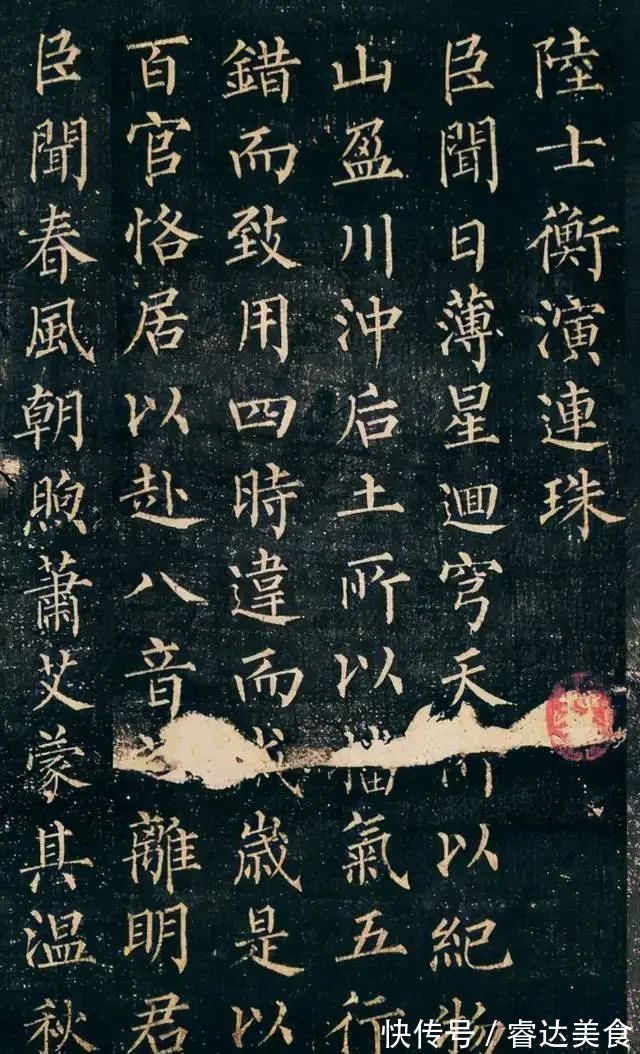 陸士衡演連珠
臣聞日薄星迴穹天所以紀物
山盈川沖后土所以播氣五行
錯而致用四時違而成歲是以
百官恪居以赴八音離明君
臣聞春風朝煦蕭艾蒙其温秋
快传号/睿达美食